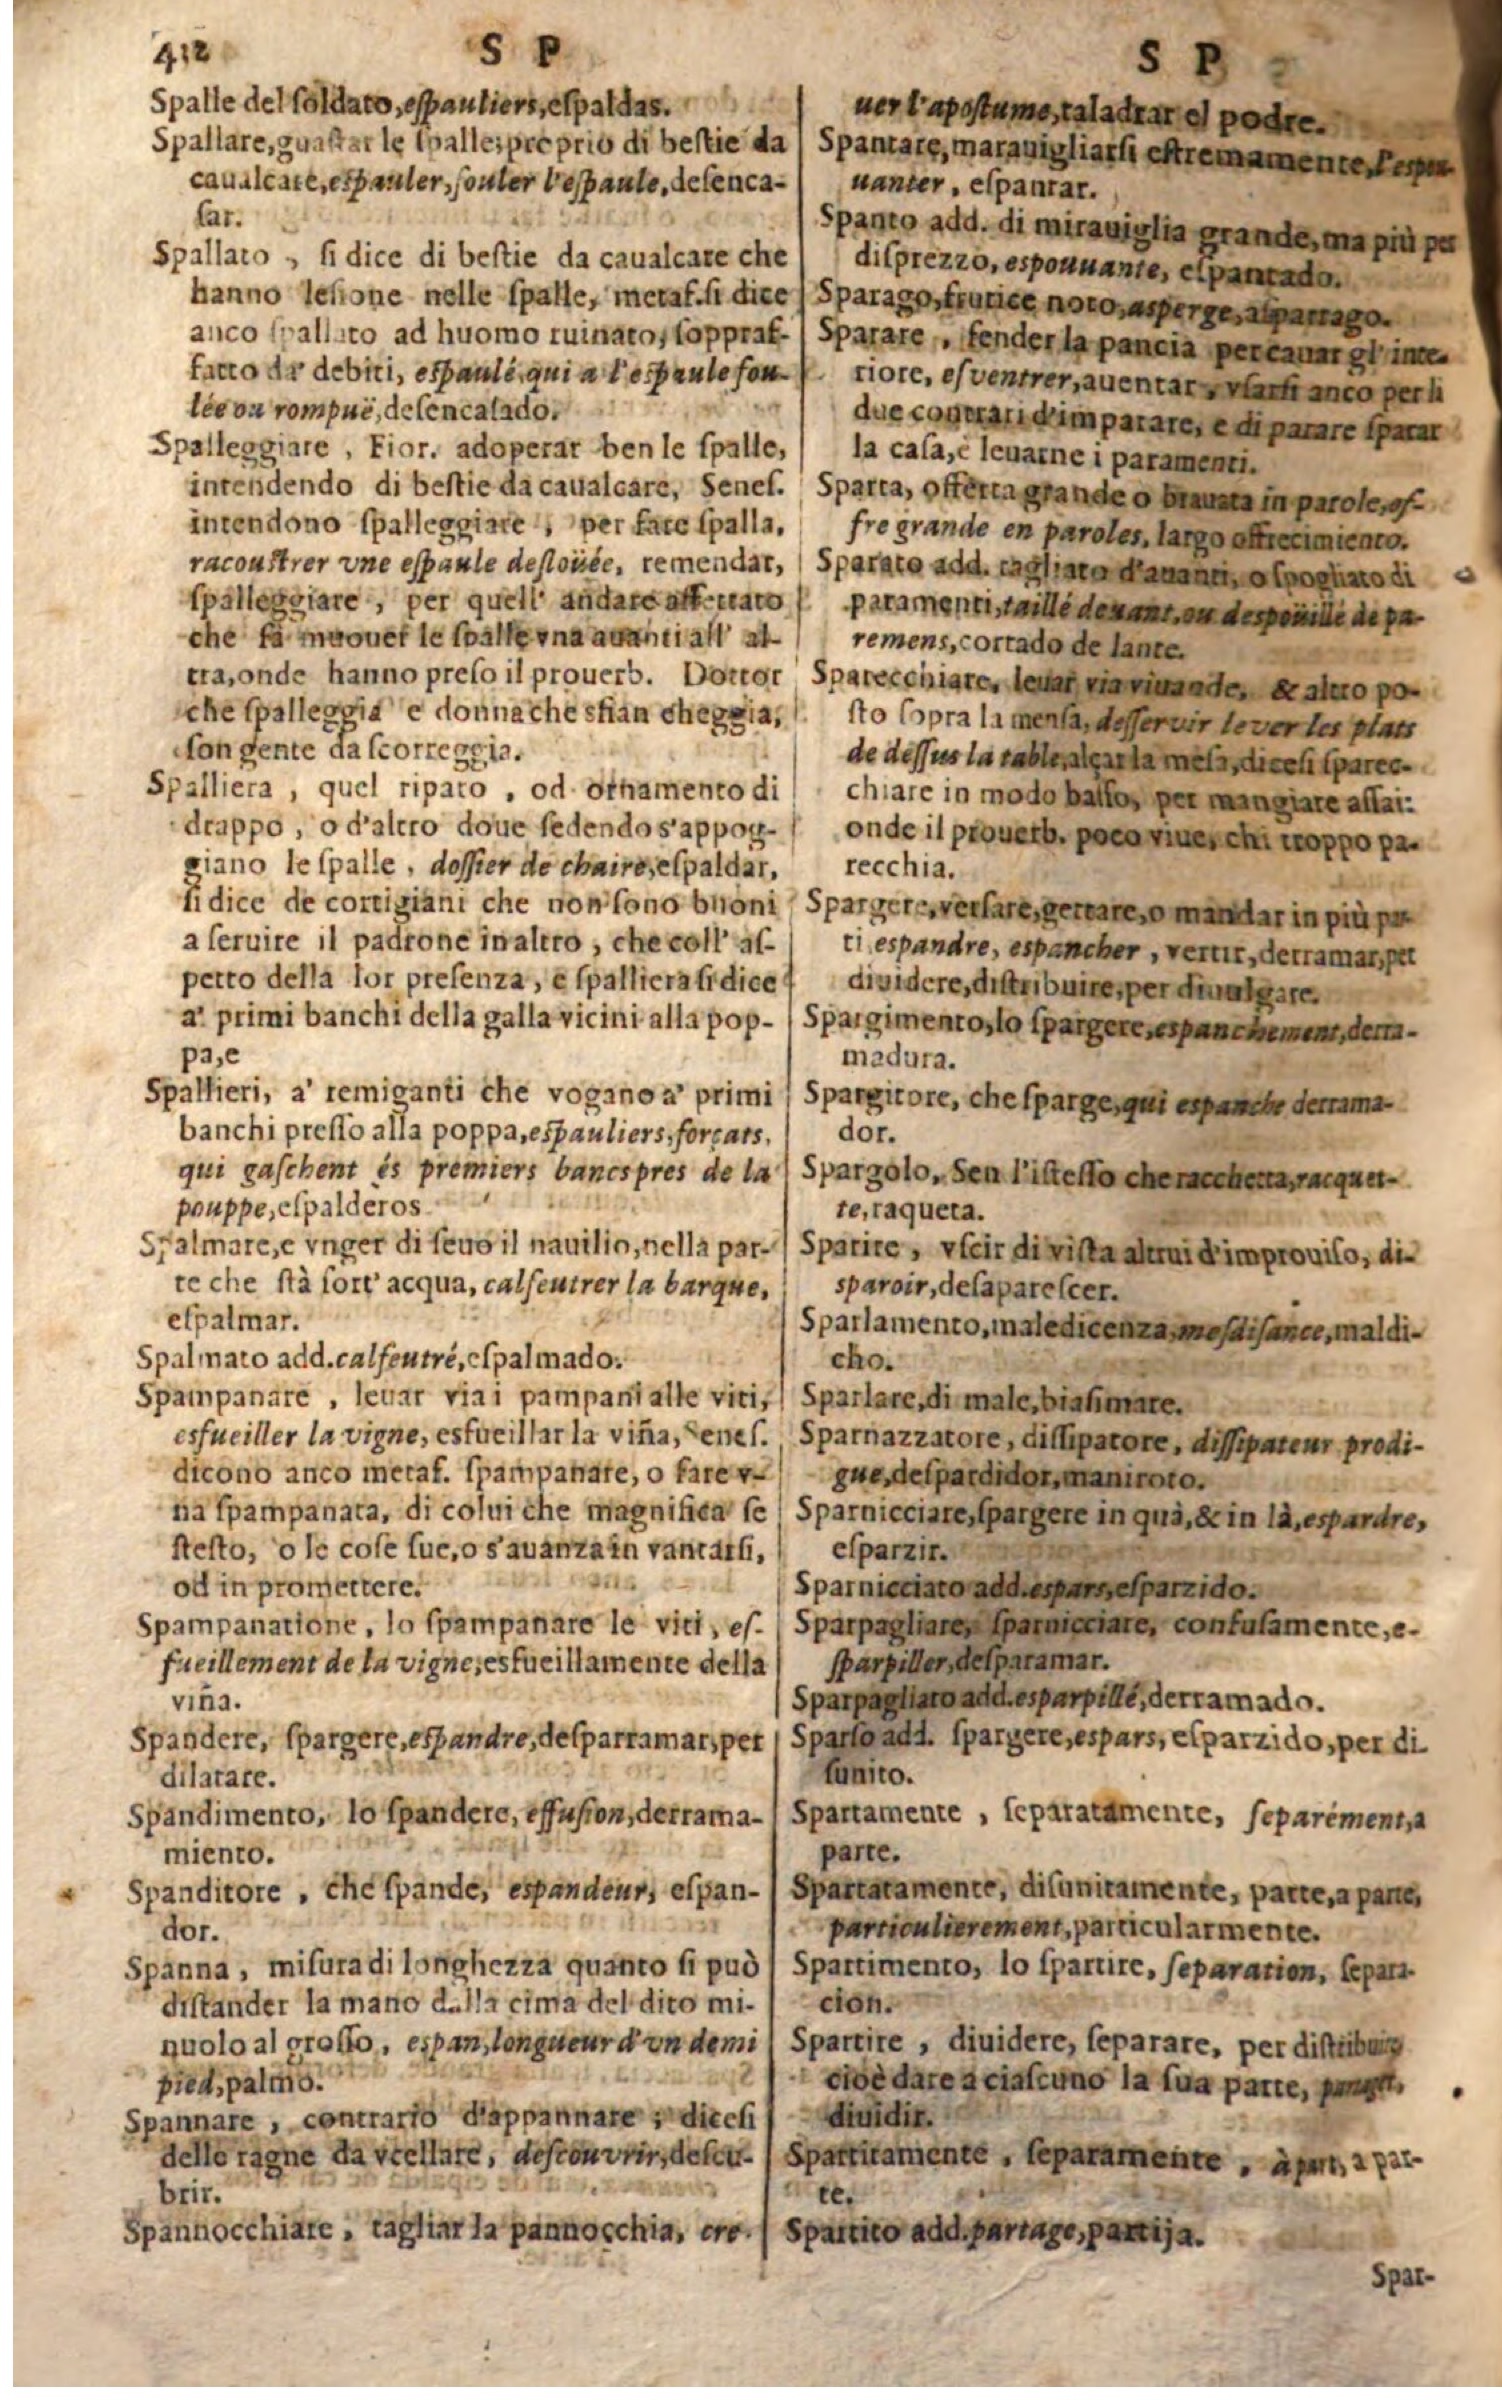 412
S P
Spalle del ſoldato, eſpauliers, eſpaldas.
Spallare, guaſtar le ſpalle; proprio di beſtie da
caualcare, eſpauler, fouler l'eſpaule, deſenca-
ſar.
Spallato, ſi dice di beſtie da caualcare che
hanno leſione nelle ſpalle, metaf. ſi dice
anco ſpallato ad huomo ruinato, ſoppraf-
fatto da' debiti, eſpaulé, qui a l'eſpaule fou-
lée ou rompuë, deſencaſado.
Spalleggiare, Fior. adoperar ben le ſpalle,
intendendo di beſtie da caualcare, Seneſ.
intendono ſpalleggiare, per fare ſpalla,
racouſtrer vne eſpaule deſloüée, remendar,
ſpalleggiare, per quell' andare affettato
che fà muouer le ſpalle vna auanti all' al-
tra, onde hanno preſo il prouerb. Dottor
che ſpalleggia e donna che sfian cheggia,
ſon gente da ſcorreggia.
Spalliera, quel riparo, od ornamento di
drappo, o d'altro doue ſedendo s'appog-
giano le ſpalle, doſſier de chaire, eſpaldar,
ſi dice de cortigiani che non ſono buoni
a ſeruire il padrone in altro, che coll' aſ-
petto della lor preſenza, e ſpalliera ſi dice
a' primi banchi della galla vicini alla pop-
pa, e
Spallieri, a' remiganti che vogano a' primi
banchi preſſo alla poppa, eſpauliers, forçats,
qui gaſchent és premiers bancs pres de la
pouppe, eſpalderos
Spalmare, e vnger di ſeuo il nauilio, nella par-
te che ſtà ſott' acqua, calfeutrer la barque,
eſpalmar.
Spalmato add. calfeutré, eſpalmado.
Spampanare, leuar via i pampani alle viti,
esfueiller la vigne, esfueillar la viña, Seneſ.
dicono anco metaf. ſpampanare, o fare v-
na ſpampanata, di colui che magnifica ſe
ſteſſo, o le coſe ſue, o s'auanza in vantarſi,
od in promettere.
Spampanatione, lo ſpampanare le viti, eſ-
fueillement de la vigne, esfueillamente della
viña.
Spandere, ſpargere, eſpandre, deſparramar, per
dilatare.
Spandimento, lo ſpandere, effuſion, derrama-
miento.
Spanditore, che ſpande, espandeur, eſpan-
dor.
Spanna, miſura di longhezza quanto ſi può
diſtander la mano dalla cima del dito mi-
nuolo al groſſo, espan, longueur d'vn demi
pied, palmo.
Spannare, contrario d'appannare; diceſi
delle ragne da vcellare, deſcouvrir, deſcu-
brir.
Spannocchiare, tagliar la pannocchia, cre-
S P
uer l'apoſtume, taladrar el podre.
Spantare, marauigliarſi eſtremamente, s'espou-
uanter, eſpantar.
Spanto add. di mirauiglia grande, ma più per
diſprezzo, espouuante, eſpantado.
Sparago, frutice noto, asperge, aſparrago.
Sparare, fender la pancia per cauar gl' inte-
riore, eſventrer, auentar, vſarſi anco per li
due contrari d'imparare, e di parare ſparar
la caſa, è leuarne i paramenti.
Sparta, offerta grande o brauata in parole, of-
fre grande en paroles, largo offrecimiento.
Sparato add. tagliato d'auanti, o ſpogliato di
paramenti, taillé deuant, ou despoüillé de pa-
remens, cortado de lante.
Sparecchiare, leuar via viuande, & altro po-
ſto ſopra la menſa, deſſervir lever les plats
de deſſus la table, alçar la meſa, diceſi ſparec-
chiare in modo baſſo, per mangiare aſſai:
onde il prouerb. poco viue, chi troppo pa-
recchia.
Spargere, verſare, gettare, o mandar in più par
ti espandre, espancher, vertir, derramar, per
diuidere, diſtribuire, per diuulgare.
Spargimento, lo ſpargere, espanchement, derra-
madura.
Spargitore, che ſparge, qui espanche derrama-
dor.
Spargolo, Sen l'iſteſſo che racchetta, racquet-
te, raqueta.
Sparire, vſcir di viſta altrui d'improuiſo, di-
sparoir, deſapareſcer.
Sparlamento, maledicenza, meſdiſance, maldi-
cho.
Sparlare, di male, biaſimare.
Sparnazzatore, diſſipatore, diſſipateur prodi-
gue, deſpardidor, maniroto.
Sparnicciare, ſpargere in quà, & in là, espardre,
eſparzir.
Sparnicciato add. espars, eſparzido.
Sparpagliare, ſparnicciare, confuſamente, e-
ſparpiller, deſparamar.
Sparpagliato add. esparpillé, derramado.
Sparſo add. ſpargere, espars, eſparzido, per di
ſunito.
Spartamente, ſeparatamente, ſeparément, a
parte.
Spartatamente, diſunitamente, parte, a parte,
particulierement, particularmente.
Spartimento, lo ſpartire, ſeparation, ſepara-
cion.
Spartire, diuidere, ſeparare, per diſtribuir
cioè dare a ciaſcuno la ſua parte,
diuidir.
Spartitamente, ſeparamente, à part, a par-
te.
Spartito add. partage, partija.
Spar-